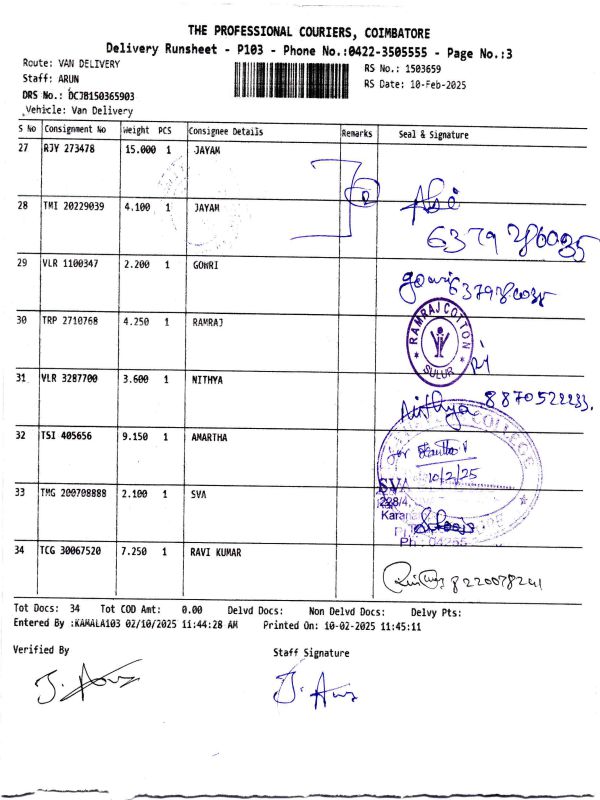 THE PROFESSIONAL COURIERS, COIMBATORE
Delivery Runsheet - P103 - Phone No.:0422-3505555 - Page No.:3
Route: VAN DELIVERY
RS No.: 1503659
Staff: ARUN
RS Date: 10-Feb-2025
DRS No.: DCJB150365903
Vehicle: Van Delivery
S No Consignment No Weight PCS Consignee Details Remarks Seal & Signature
27 RJY 273478 15.000 1 JAYAM
28 TMI 20229039 4.100 1 JAYAM
29 VLR 1100347 2.200 1 GOWRI
gowri
30 TRP 2710768 4.250 1 RAMRAJ
RAMRAJ COTTON
SULUR
31 VLR 3287700 3.600 1 NITHYA
Nithya 8870522233.
32 TSI 405656 9.150 1 AMARTHA
COLLEGE
for
10/2/25
33 TMG 200708888 2.100 1 SVA
SVA
228/4,
34 TCG 30067520 7.250 1 RAVI KUMAR
8220078241
Tot Docs: 34 Tot COD Amt: 0.00 Delvd Docs: Non Delvd Docs: Delvy Pts:
Entered By :KAMALA103 02/10/2025 11:44:28 AM Printed On: 10-02-2025 11:45:11
Verified By
Staff Signature